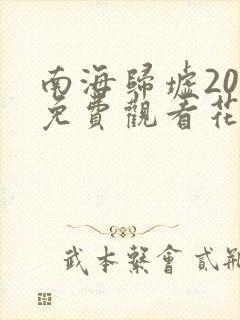 南海歸墟20
免費觀看花
武本繫會貳瓶